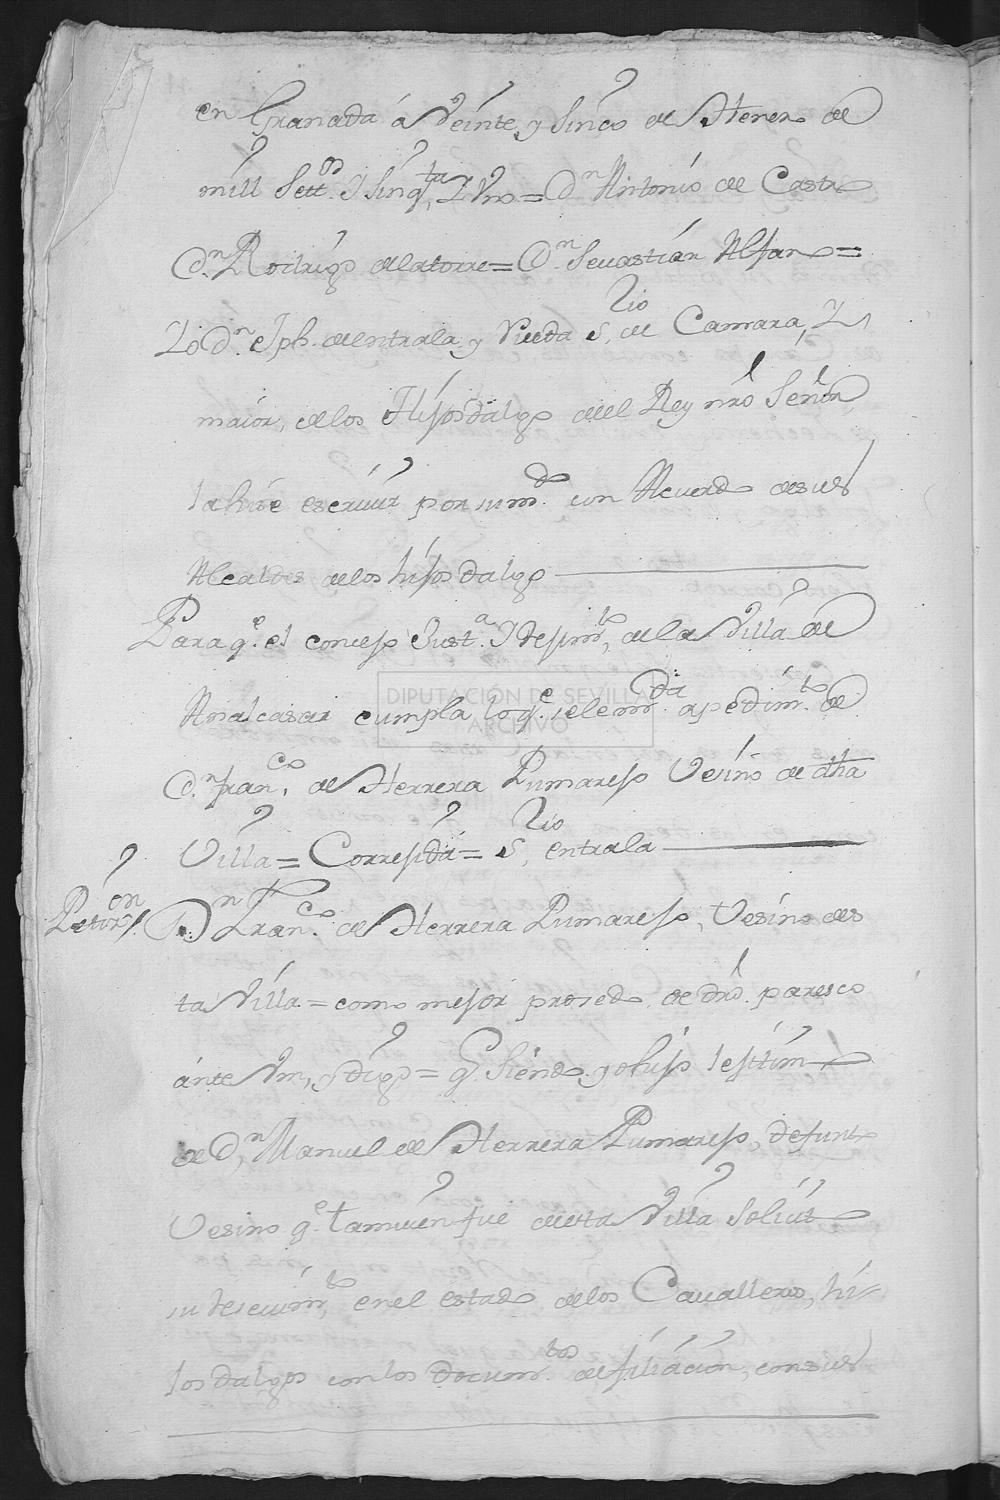 en Granada á Veinte, y sinco de Henero de
mill Sett.os y sinq.ta y Uno = D.n Antonio de Castro
D.n Rodrigo delatorre = D.n Sevastian Alfaro =
Yo D.n Jph. de entrala y Rueda S.rio de Camara, y
maior, de los Hijosdalgo deel Rey nrô Señor,
la hise escriuir por su md.do con Acuerdo de sus
Alcaldes delos hijos dalgo
Para q.e el consejo Just.a y Resim.to, de la Villa de
Analcasar cumpla loq.e sele m.da apedim.to de
D.n Fran.co de Herrera Pumarejo Vesino de dha
Villa = Correjida = S.rio entrala
Petiz.on
D.n Fran.co de Herrera Pumarejo, Vesino des
ta Villa = como mejor prosedo de drô. paresco
ánte Vm, y digo = q.e siendo yo hijo lejitimo
de D.n Manuel de Herrera Pumarejo, defunto
Vesino q.e tamuien fue de esta Villa solisito
su Reseuim.to en el estado de los Caualleros, hi
josdalgo con los docum.tos de filiásion, con sus
DIPUTACIÓN DE SEVILLA
ARCHIVO